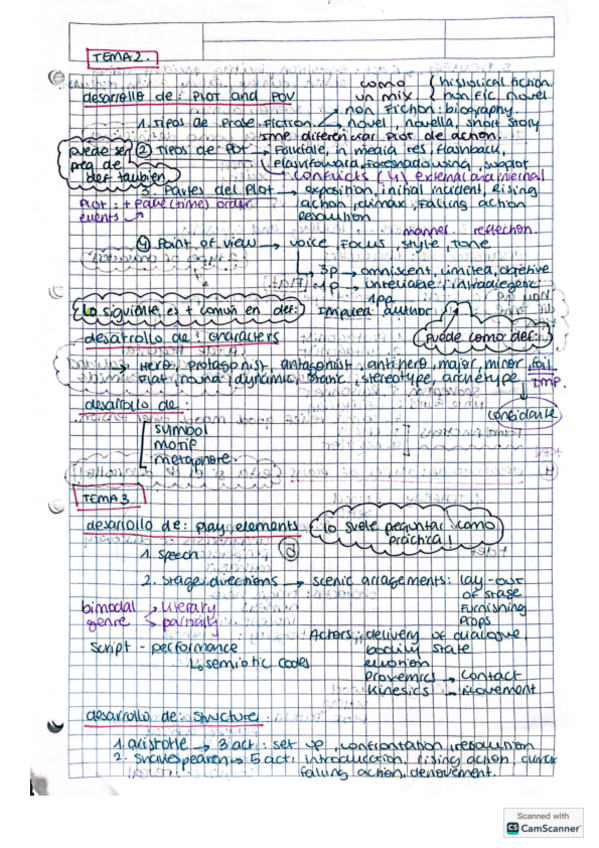 TEMA 2.
como un mix { historical fiction. non fic novel
desarrollo de: PLOT and POV
non Fiction: biography
1. Tipos de Prose Fiction novel, novella, short story
diferenciar Plot de action.
puede ser preg de def tambien
② Tipos de Plot → Folktale, in media res, flashback,
flashfoward, foreshadowing,
+ conflicts (4) external and internal
3. Partes del Plot → exposition, initial incident, Rising
Plot: + (time) order
events
action, climax, Falling action
Resolution
manner reflection.
④ Point of view → voice, Focus, style, tone
3p → omniscent, limited, objetive
1p → unreliable, intradiegetic
Lo siguiente es + común en def: Implied author
puede como def:
desarrollo de: characters
→ Hero, protagonist, antagonist, antihero, major, minor, foil
Flat, round, dynamic, static, stereotype, archetype
IMP.
confidante
desarrollo de:
symbol
motif
metaphore.
TEMA 3
desarrollo de: play elements
Lo suele preguntar como práctica!
1. Speech
2. Stage directions → scenic arragements: lay-out
of stage
Furnishing
Props
bimodal genre → literary
Actors: delivery of dialogue
bodily state
emotion
Proxemics → Contact
Kinesics → Movement
Script - performance
↳ semiotic codes
desarrollo de: Structure
1. aristotle → 3 act: set up, confrontation, resolution
2. Shakespearen → 5 act: introduction, rising action, climax
falling action, denovement.
Scanned with
CS CamScanner